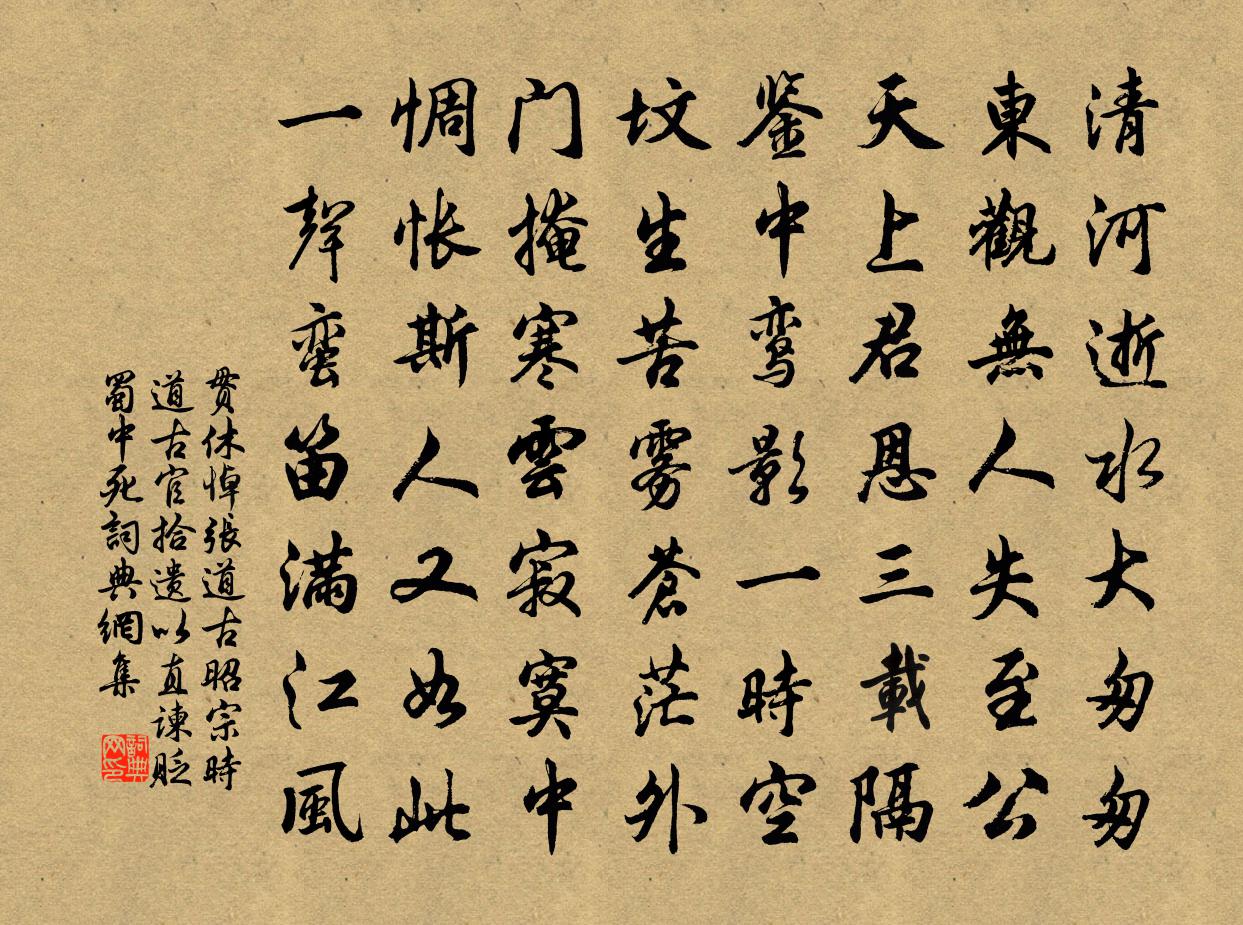 清河逝水大匆匆
東觀無人失至公
天上君恩三載隔
鉴中鸾影一時空
坟生苦雾蒼茫外
门掩寒雲寂寞中
惆怅斯人又如此
一聲蛮笛满江風
贯休悼張道古昭宗時
道古官拾遗以直諫貶
蜀中死詞典網集
詞典网印